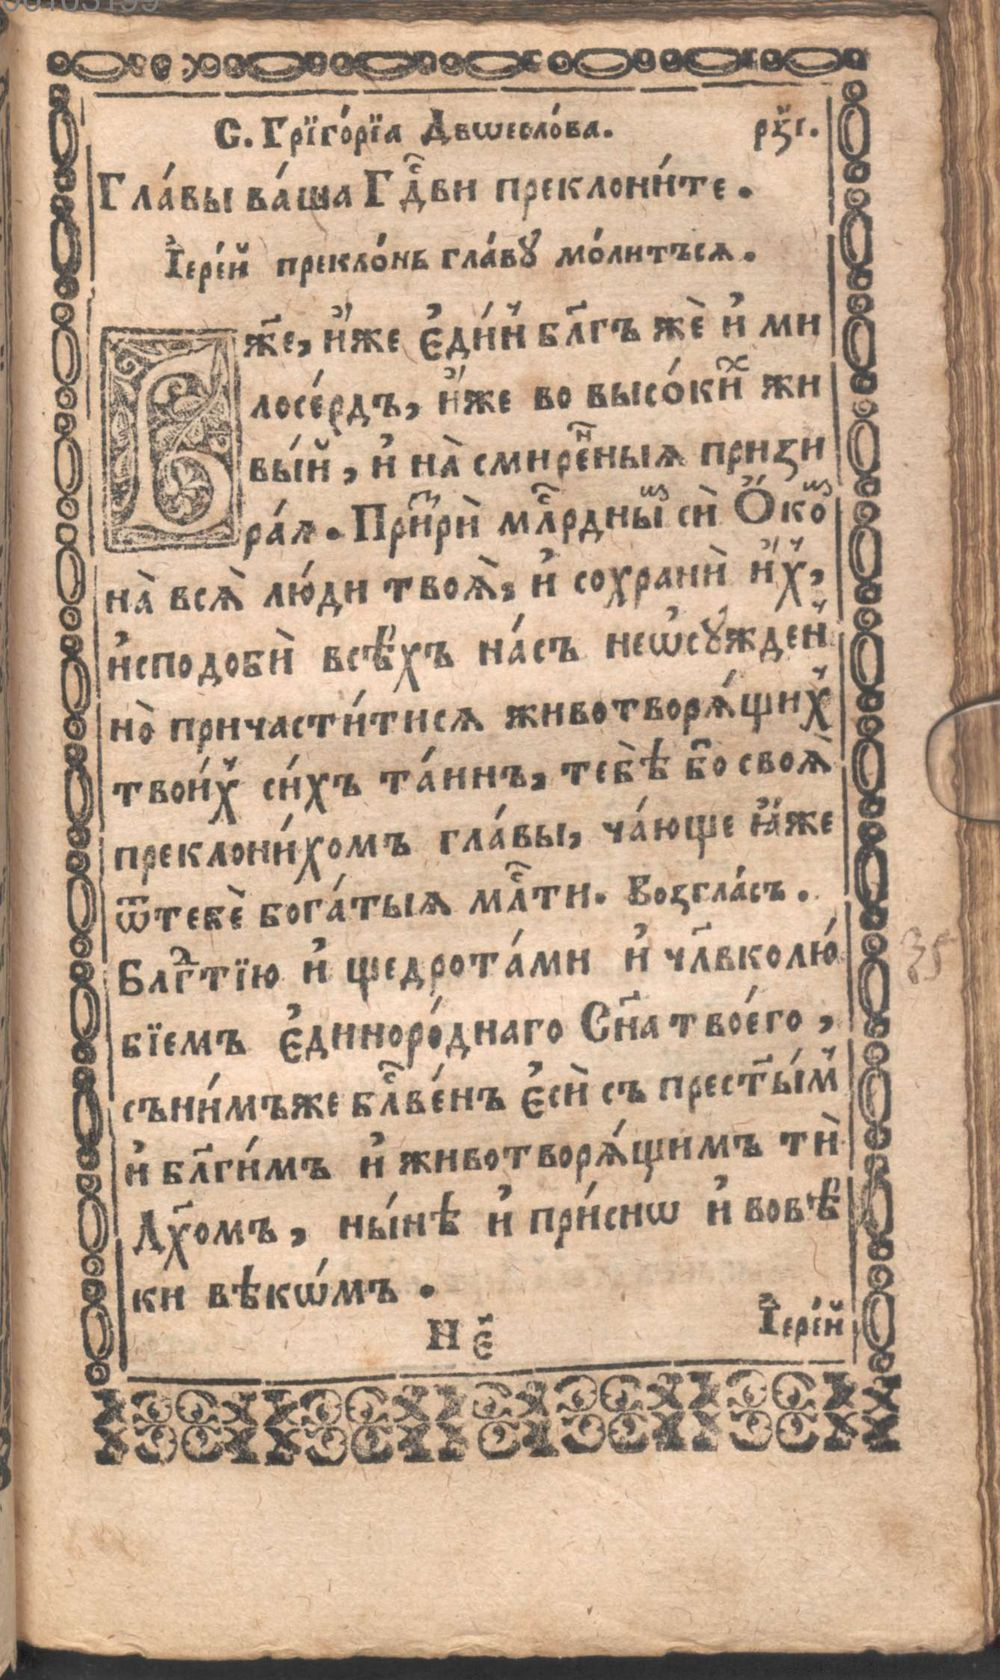 С. Грїго́рїа Двѡесло́ва. рѯг.
Гла́вы ва́ша Гдⷭ҇ви преклони́те.
І҆ере́й прекло́нь гла́вꙋ мо́литъсѧ.
Бж҃е, и҆́же є҆ди́нꙵ бл҃гъ жѐ и҆ ми
лосе́рдъ, и҆́же во высо́киⷯ жи
вы́й, и҆ на̀ смире́нⷩ҇ыѧ призи
ра́ѧ. При́ⷥрѝ млⷭ҇рдныⷨ сѝ Ѻ҆́коⷨ
на̀ всѧ̀ лю́ди твоѧ̀, и҆ сохранѝ и҆́х̾,
и҆сподобѝ всѣ́хъ на́съ неѡ҆сꙋ́жден
но̀ причасти́тисѧ животворѧ́щих̾
твои́х̾ си́хъ та́инъ, тебѣ̀ бо̑ своѧ̀
преклони́хомъ гла́вы, ча́юще ꙗ҆́же
ѿтебѐ бога́тыѧ млⷭ҇ти. Возгла́съ.
Блгⷣтїю и҆ щедрота́ми и҆ чл҃вколю́
бїемъ є҆диноро́днаго Сн҃а твое́го,
съни́мъже блⷭ҇ве́нъ є҆сѝ съ прест҃ы́м̾
и҆ бл҃ги́мъ и҆ животворѧ́щимъ тѝ
Дх҃омъ, ны́нѣ и҆ при́снѡ и҆ вовѣ́
ки вѣкѡ́мъ.
Н є҃ І҆ере́й